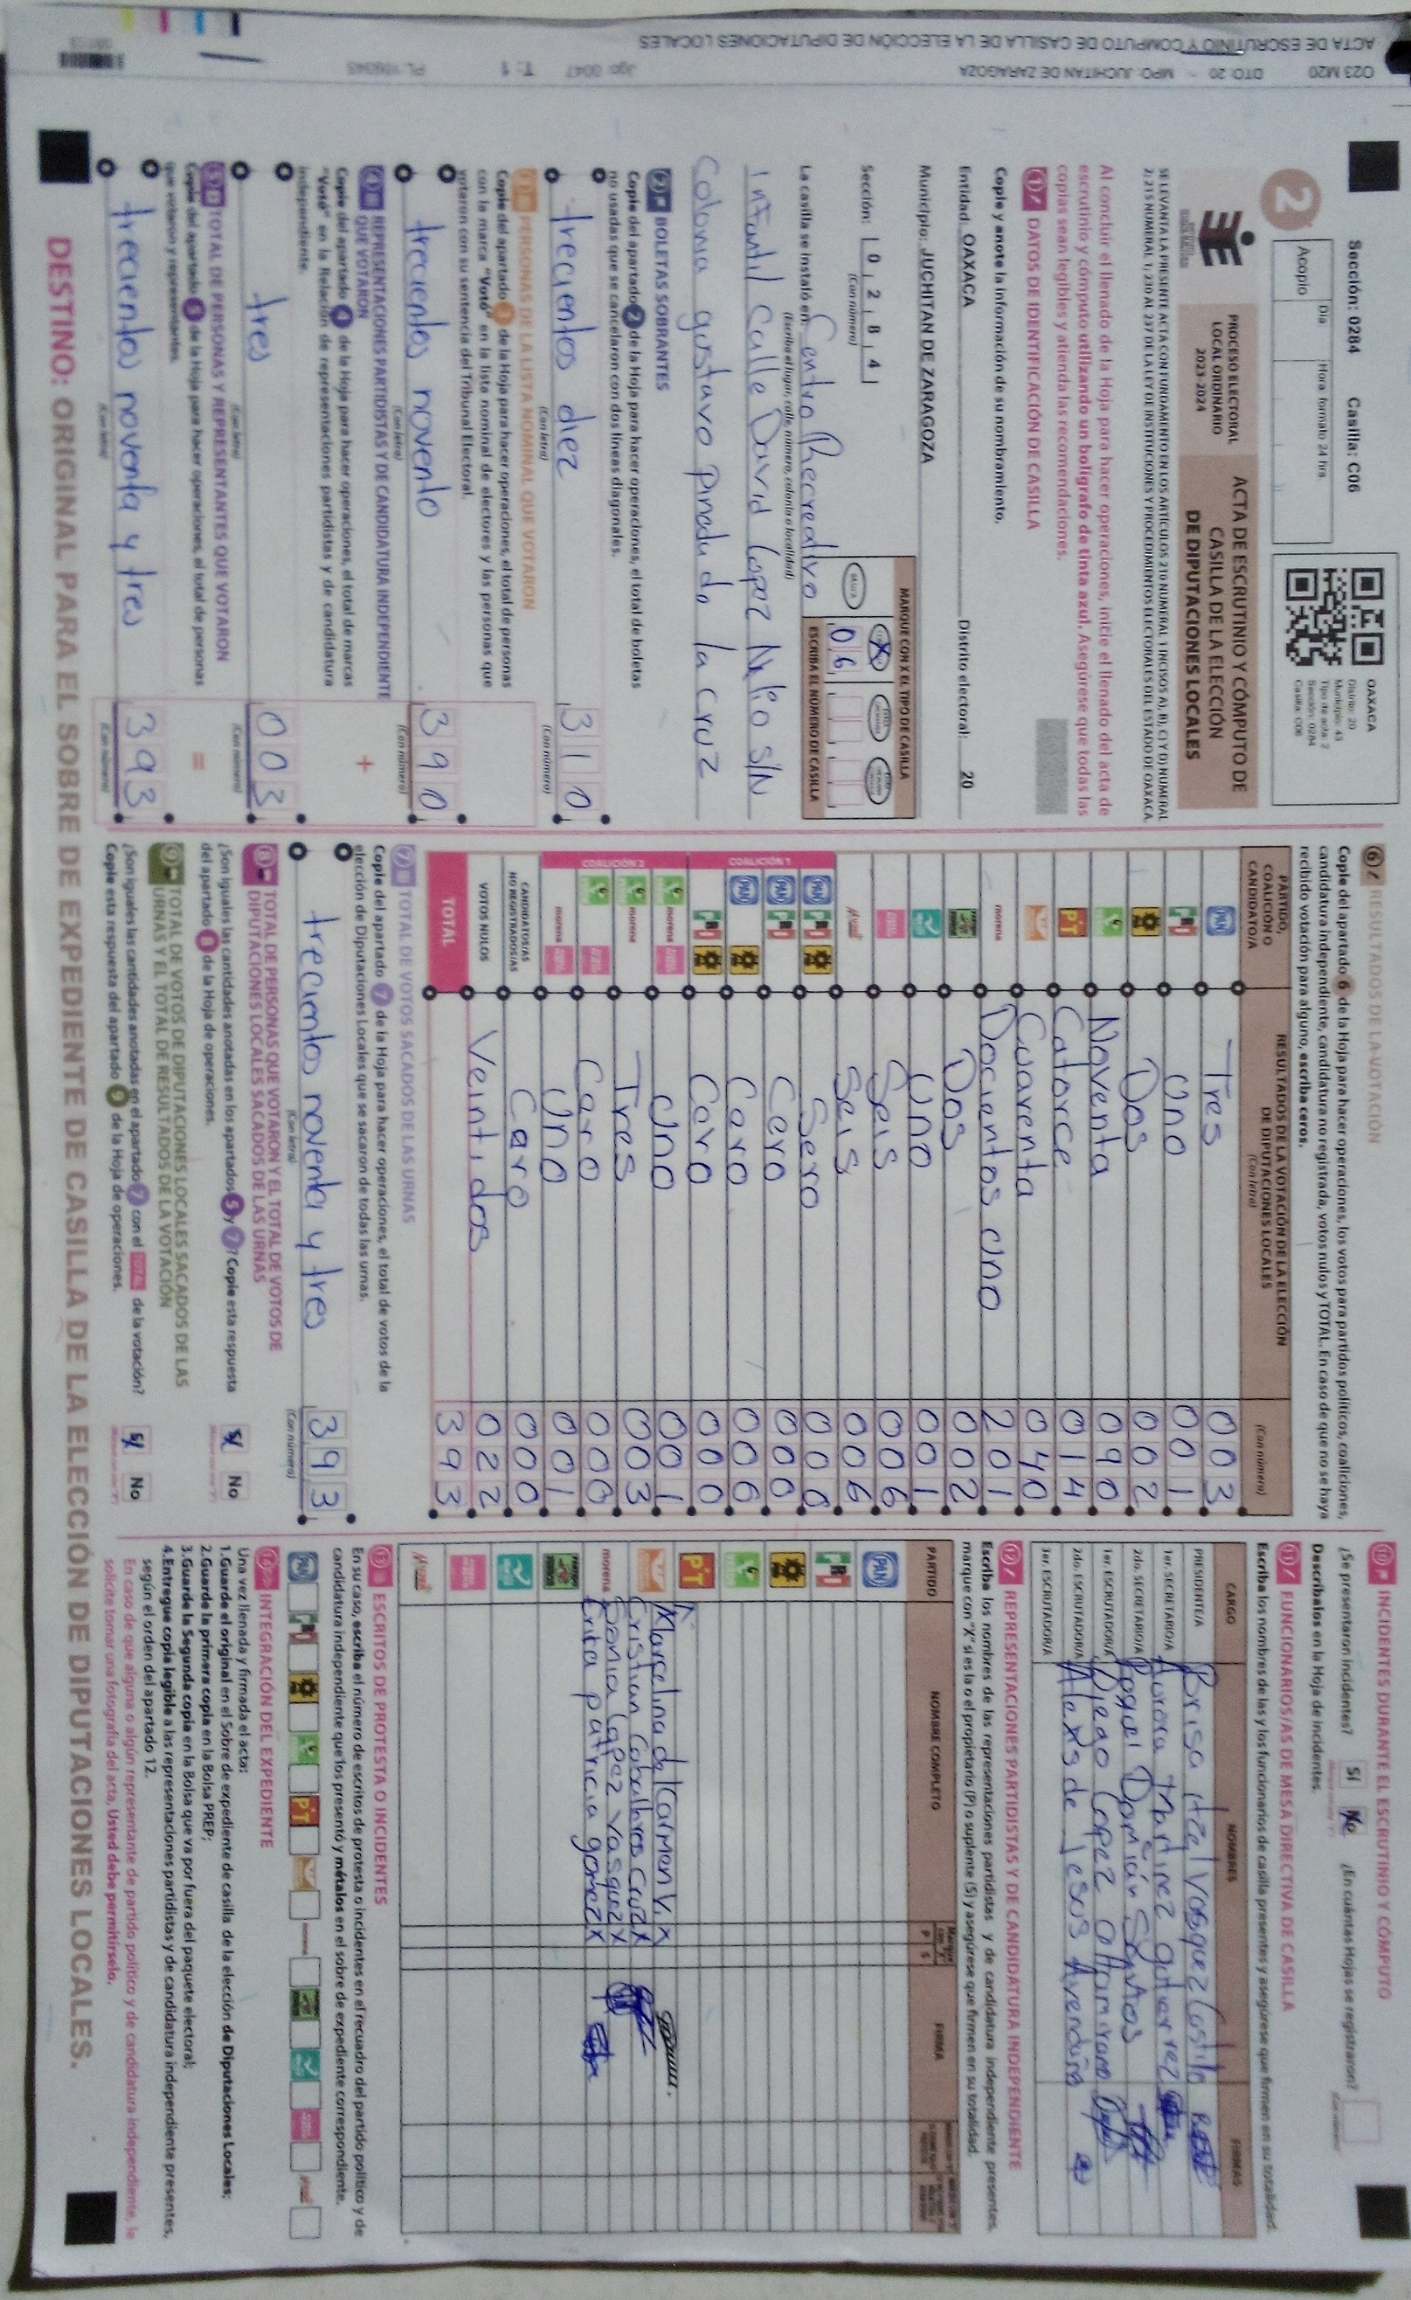 Sección: 0284 Casilla: C06
OAXACA
Distrito: 20
Municipio: 43
Tipo de acta: 2
Sección: 0284
Casilla: C06
2
Día
Hora formato 24 hrs
Acopio
PROCESO ELECTORAL
LOCAL ORDINARIO
2023-2024
ACTA DE ESCRUTINIO Y CÓMPUTO DE
CASILLA DE LA ELECCIÓN
DE DIPUTACIONES LOCALES
SE LEVANTA LA PRESENTE ACTA CON FUNDAMENTO EN LOS ARTÍCULOS 210 NUMERAL 1 INCISOS A), B), C) Y D) NUMERAL
2; 215 NUMERAL 1; 230 AL 237 DE LA LEY DE INSTITUCIONES Y PROCEDIMIENTOS ELECTORALES DEL ESTADO DE OAXACA.
Al concluir el llenado de la Hoja para hacer operaciones, inicie el llenado del acta de
escrutinio y cómputo utilizando un bolígrafo de tinta azul. Asegúrese que todas las
copias sean legibles y atienda las recomendaciones.
1 DATOS DE IDENTIFICACIÓN DE CASILLA
Copie y anote la información de su nombramiento.
Entidad: OAXACA Distrito electoral: 20
Municipio: JUCHITAN DE ZARAGOZA
Sección: 0 2 8 4
(Con número)
MARQUE CON X EL TIPO DE CASILLA
BÁSICA
X
0 6
ESCRIBA EL NÚMERO DE CASILLA
La casilla se instaló en: Centro Recreativo
(Escriba el lugar, calle, número, colonia o localidad)
Infantil Calle David Lopez Nelio S/N
Colonia gustavo Pineda de la Cruz
2 BOLETAS SOBRANTES
Copie del apartado 2 de la Hoja para hacer operaciones, el total de boletas
no usadas que se cancelaron con dos líneas diagonales.
trecientos diez 310
(Con letra) (Con número)
3 PERSONAS DE LA LISTA NOMINAL QUE VOTARON
Copie del apartado 3 de la Hoja para hacer operaciones, el total de personas
con la marca "Votó" en la lista nominal de electores y las personas que
votaron con su sentencia del Tribunal Electoral.
treciento novento 390
(Con letra) (Con número)
4 REPRESENTACIONES PARTIDISTAS Y DE CANDIDATURA INDEPENDIENTE
QUE VOTARON
Copie del apartado 4 de la Hoja para hacer operaciones, el total de marcas
"Votó" en la Relación de representaciones partidistas y de candidatura
independiente.
+
tres 003
(Con letra) (Con número)
5 TOTAL DE PERSONAS Y REPRESENTANTES QUE VOTARON
Copie del apartado 5 de la Hoja para hacer operaciones, el total de personas
que votaron y representantes.
=
treciento noventa y tres 393
(Con letra) (Con número)
6 RESULTADOS DE LA VOTACIÓN
Copie del apartado 6 de la Hoja para hacer operaciones, los votos para partidos políticos, coaliciones,
candidatura independiente, candidatura no registrada, votos nulos y TOTAL. En caso de que no se haya
recibido votación para alguno, escriba ceros.
PARTIDO,
COALICIÓN O
CANDIDATO/A
RESULTADOS DE LA VOTACIÓN DE LA ELECCIÓN
DE DIPUTACIONES LOCALES
(Con letra)
(Con número)
PAN Tres 003
PRI Uno 001
Dos 002
Noventa 090
PT Catorce 014
Cuarenta 040
morena Docientos Uno 201
Dos 002
Uno 001
Seis 006
Seis 006
COALICIÓN 1
PAN PRI Sero 000
PAN PRI Cero 000
PAN Cero 000
PRI Cero 000
COALICIÓN 2
morena Uno 001
morena Tres 003
Cero 000
morena Uno 001
CANDIDATOS/AS
NO REGISTRADOS/AS Cero 000
VOTOS NULOS Veintidos 022
TOTAL 393
7 TOTAL DE VOTOS SACADOS DE LAS URNAS
Copie del apartado 7 de la Hoja para hacer operaciones, el total de votos de la
elección de Diputaciones Locales que se sacaron de todas las urnas.
treciento noventa y tres 393
(Con letra) (Con número)
8 TOTAL DE PERSONAS QUE VOTARON Y EL TOTAL DE VOTOS DE
DIPUTACIONES LOCALES SACADOS DE LAS URNAS
¿Son iguales las cantidades anotadas en los apartados 5 y 7? Copie esta respuesta
del apartado 8 de la Hoja de operaciones.
Sí No
9 TOTAL DE VOTOS DE DIPUTACIONES LOCALES SACADOS DE LAS
URNAS Y EL TOTAL DE RESULTADOS DE LA VOTACIÓN
¿Son iguales las cantidades anotadas en el apartado 7 con el TOTAL de la votación?
Copie esta respuesta del apartado 9 de la Hoja de operaciones.
Sí No
10 INCIDENTES DURANTE EL ESCRUTINIO Y CÓMPUTO
¿Se presentaron incidentes? Sí No ¿En cuántas Hojas se registraron?
Descríbalos en la Hoja de incidentes.
11 FUNCIONARIOS/AS DE MESA DIRECTIVA DE CASILLA
Escriba los nombres de las y los funcionarios de casilla presentes y asegúrese que firmen en su totalidad.
CARGO NOMBRES FIRMAS
PRESIDENTE/A Brisa Itzel Vasquez Castillo
1er. SECRETARIO/A Aurora Martinez gutierrez
2do. SECRETARIO/A Raquel Santos
1er. ESCRUTADOR/A Diego Lopez Altamirano
2do. ESCRUTADOR/A Alexis de Jesus Avendaño
3er. ESCRUTADOR/A
12 REPRESENTACIONES PARTIDISTAS Y DE CANDIDATURA INDEPENDIENTE
Escriba los nombres de las representaciones partidistas y de candidatura independiente presentes,
marque con "X" si es la o el propietario (P) o suplente (S) y asegúrese que firmen en su totalidad.
PARTIDO NOMBRE COMPLETO P S FIRMA
PAN
PRI
PT Marcelina del Carmen V. X
Cristian Caballero Cruz X
Sonia Lopez Vasquez X
morena Erita patricia gomez X
13 ESCRITOS DE PROTESTA O INCIDENTES
En su caso, escriba el número de escritos de protesta o incidentes en el recuadro del partido político y de
candidatura independiente que los presentó y métalos en el sobre de expediente correspondiente.
PAN PRI PT morena
14 INTEGRACIÓN DEL EXPEDIENTE
Una vez llenada y firmada el acta:
1.Guarde el original en el Sobre de expediente de casilla de la elección de Diputaciones Locales;
2.Guarde la primera copia en la Bolsa PREP;
3.Guarde la Segunda copia en la Bolsa que va por fuera del paquete electoral;
4.Entregue copia legible a las representaciones partidistas y de candidatura independiente presentes,
según el orden del apartado 12.
En caso de que alguna o algún representante de partido político y de candidatura independiente, le
solicite tomar una fotografía del acta, Usted debe permitírselo.
DESTINO: ORIGINAL PARA EL SOBRE DE EXPEDIENTE DE CASILLA DE LA ELECCIÓN DE DIPUTACIONES LOCALES.
023 M20 DTO: 20 - MPO: JUCHITAN DE ZARAGOZA Jgo: 0047 T: 1
ACTA DE ESCRUTINIO Y COMPUTO DE CASILLA DE LA ELECCIÓN DE DIPUTACIONES LOCALES